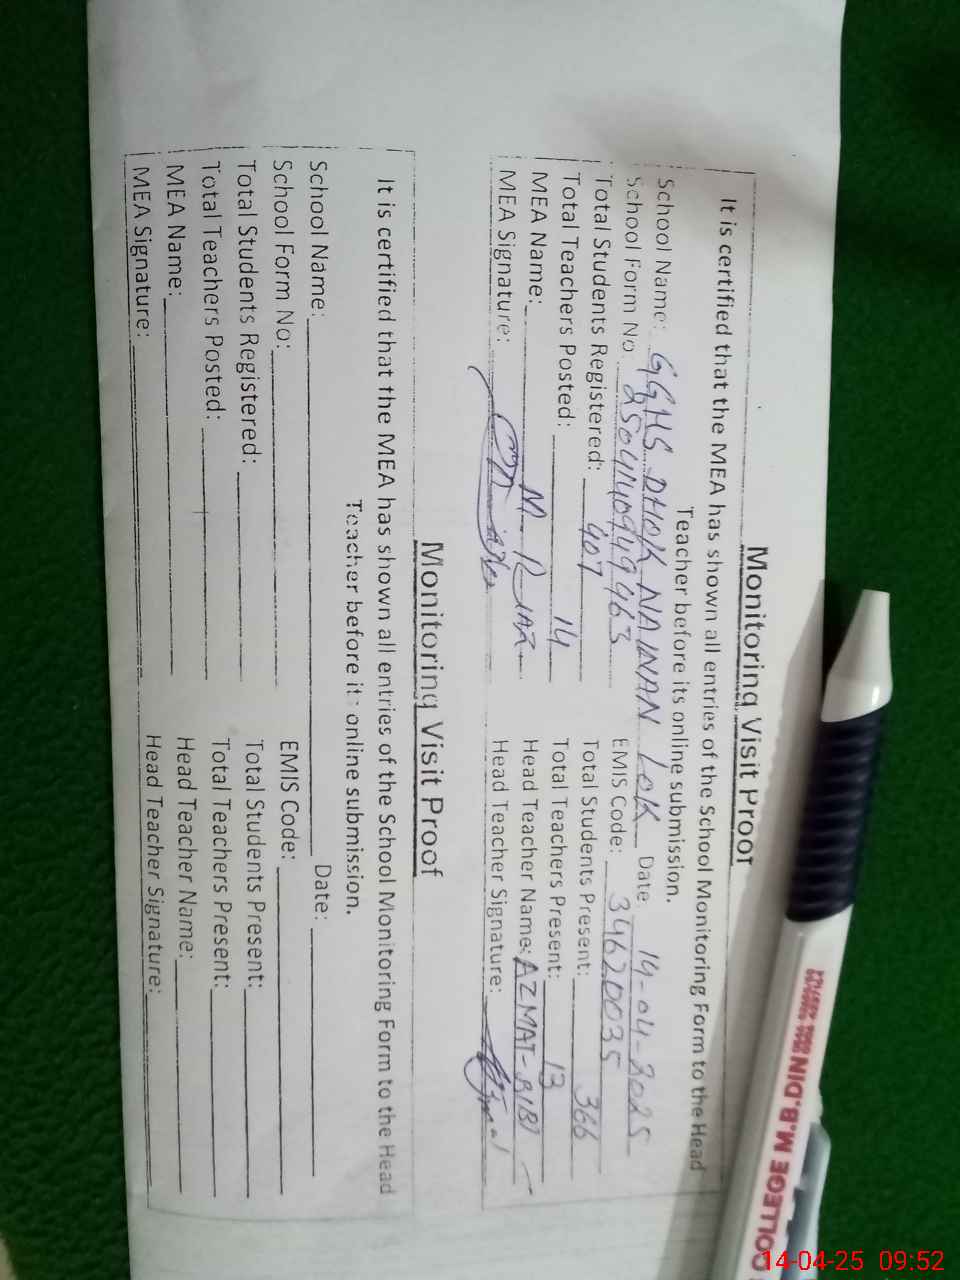 Monitoring Visit Proof
It is certified that the MEA has shown all entries of the School Monitoring Form to the Head
Teacher before its online submission.
School Name: GGHS DHOK NAINAN LOK Date 14-04-2025
School Form No. 2504140949463 EMIS Code: 34620035
Total Students Registered: 407 Total Students Present: 366
Total Teachers Posted: 14 Total Teachers Present: 13
MEA Name: M. RIAZ Head Teacher Name: AZMAT-BIBI
MEA Signature: Head Teacher Signature:
Monitoring Visit Proof
It is certified that the MEA has shown all entries of the School Monitoring Form to the Head
Teacher before its online submission.
School Name: Date:
School Form No: EMIS Code:
Total Students Registered: Total Students Present:
Total Teachers Posted: Total Teachers Present:
MEA Name: Head Teacher Name:
MEA Signature: Head Teacher Signature:
COLLEGE M.B.DIN
14-04-25 09:52